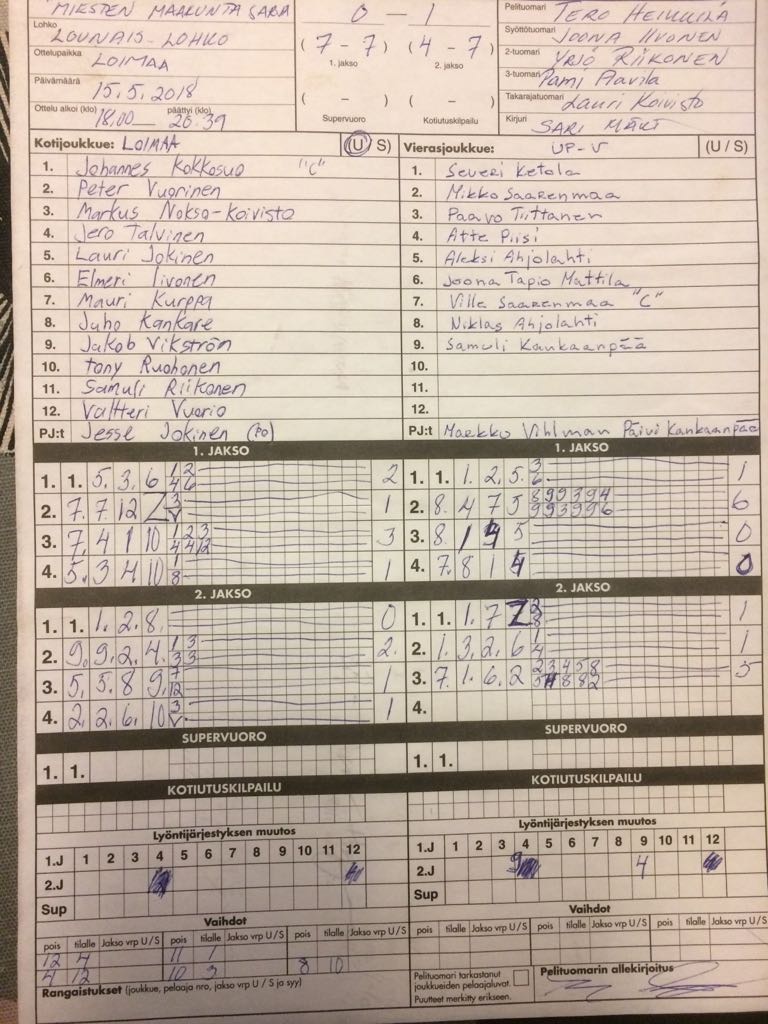 MIESTEN MAAKUNTASARJA
Lohko
LOUNAIS-LOHKO
Ottelupaikka
LOIMAA
Päivämäärä
15.5.2018
Ottelu alkoi (klo) päättyi (klo)
18.00 — 20.39
0 — 1
(7 - 7) (4 - 7)
1. jakso 2. jakso
( - ) ( - )
Supervuoro Kotiutuskilpailu
Pelituomari TERO HEIKKILÄ
Syöttötuomari JOONA IIVONEN
2-tuomari YRJÖ RIIKONEN
3-tuomari
Takarajatuomari Lauri Koivisto
Kirjuri SARI MÄKI
Kotijoukkue: LOIMAA (U/S)
1. Johannes Kokkosuo "C"
2. Peter Vuorinen
3. Markus Nokso-Koivisto
4. Jero Talvinen
5. Lauri Jokinen
6. Elmeri Iivonen
7. Mauri Kurppa
8. Juho Kankare
9. Jakob Vikström
10. Tony Ruohonen
11. Samuli Riikonen
12. Valtteri Vuorio
PJ:t Jesse Jokinen (PO)
Vierasjoukkue: UP-V (U/S)
1. Severi Ketola
2. Mikko Saarenmaa
3. Paavo Tiittanen
4. Atte Piisi
5. Aleksi Ahjolahti
6. Joona Tapio Mattila
7. Ville Saarenmaa "C"
8. Niklas Ahjolahti
9. Samuli Kankaanpää
10.
11.
12.
PJ:t Markko Vihlman Päivi Kankaanpää
1. JAKSO
1. 1. 5. 3. 6 1 2 2
4 6
2. 7. 7. 12 Z 3 1
V
3. 7. 4 1 10 1 2 3 3
4 4 12
4. 5. 3 4 10 1 1
8
2. JAKSO
1. 1. 1. 2. 8. 0
2. 9. 9. 2. 4. 1 3 2.
3 3
3. 5. 5. 8 9. 7 1
12
4. 2. 2. 6. 10 3 1
V
SUPERVUORO
1. 1.
KOTIUTUSKILPAILU
1. JAKSO
1. 1. 1. 2. 5. 3 1
6
2. 8. 4 7 5 8 9 9 3 9 4 6
9 9 3 9 9 6
3. 8. 1 4 5 0
4. 7. 8 1 4 0
2. JAKSO
1. 1. 1. 7 Z 2 1
8
2. 1. 3. 2. 6 1 1
4
3. 7. 1. 6. 2 2 3 4 5 8 5
5 4 8 8 2
4.
SUPERVUORO
1. 1.
KOTIUTUSKILPAILU
Lyöntijärjestyksen muutos
1.J 1 2 3 4 5 6 7 8 9 10 11 12
2.J
Sup
Vaihdot
pois tilalle Jakso vrp U/S pois tilalle Jakso vrp U/S pois tilalle Jakso vrp U/S
12 4 11 1
4 12 10 3 8 10
Rangaistukset (joukkue, pelaaja nro, jakso vrp U / S ja syy)
Lyöntijärjestyksen muutos
1.J 1 2 3 4 5 6 7 8 9 10 11 12
2.J 9 4
Sup
Vaihdot
pois tilalle Jakso vrp U/S pois tilalle Jakso vrp U/S pois tilalle Jakso vrp U/S
Pelituomari tarkastanut
joukkueiden pelaajaluvat.
Puutteet merkitty erikseen.
Pelituomarin allekirjoitus